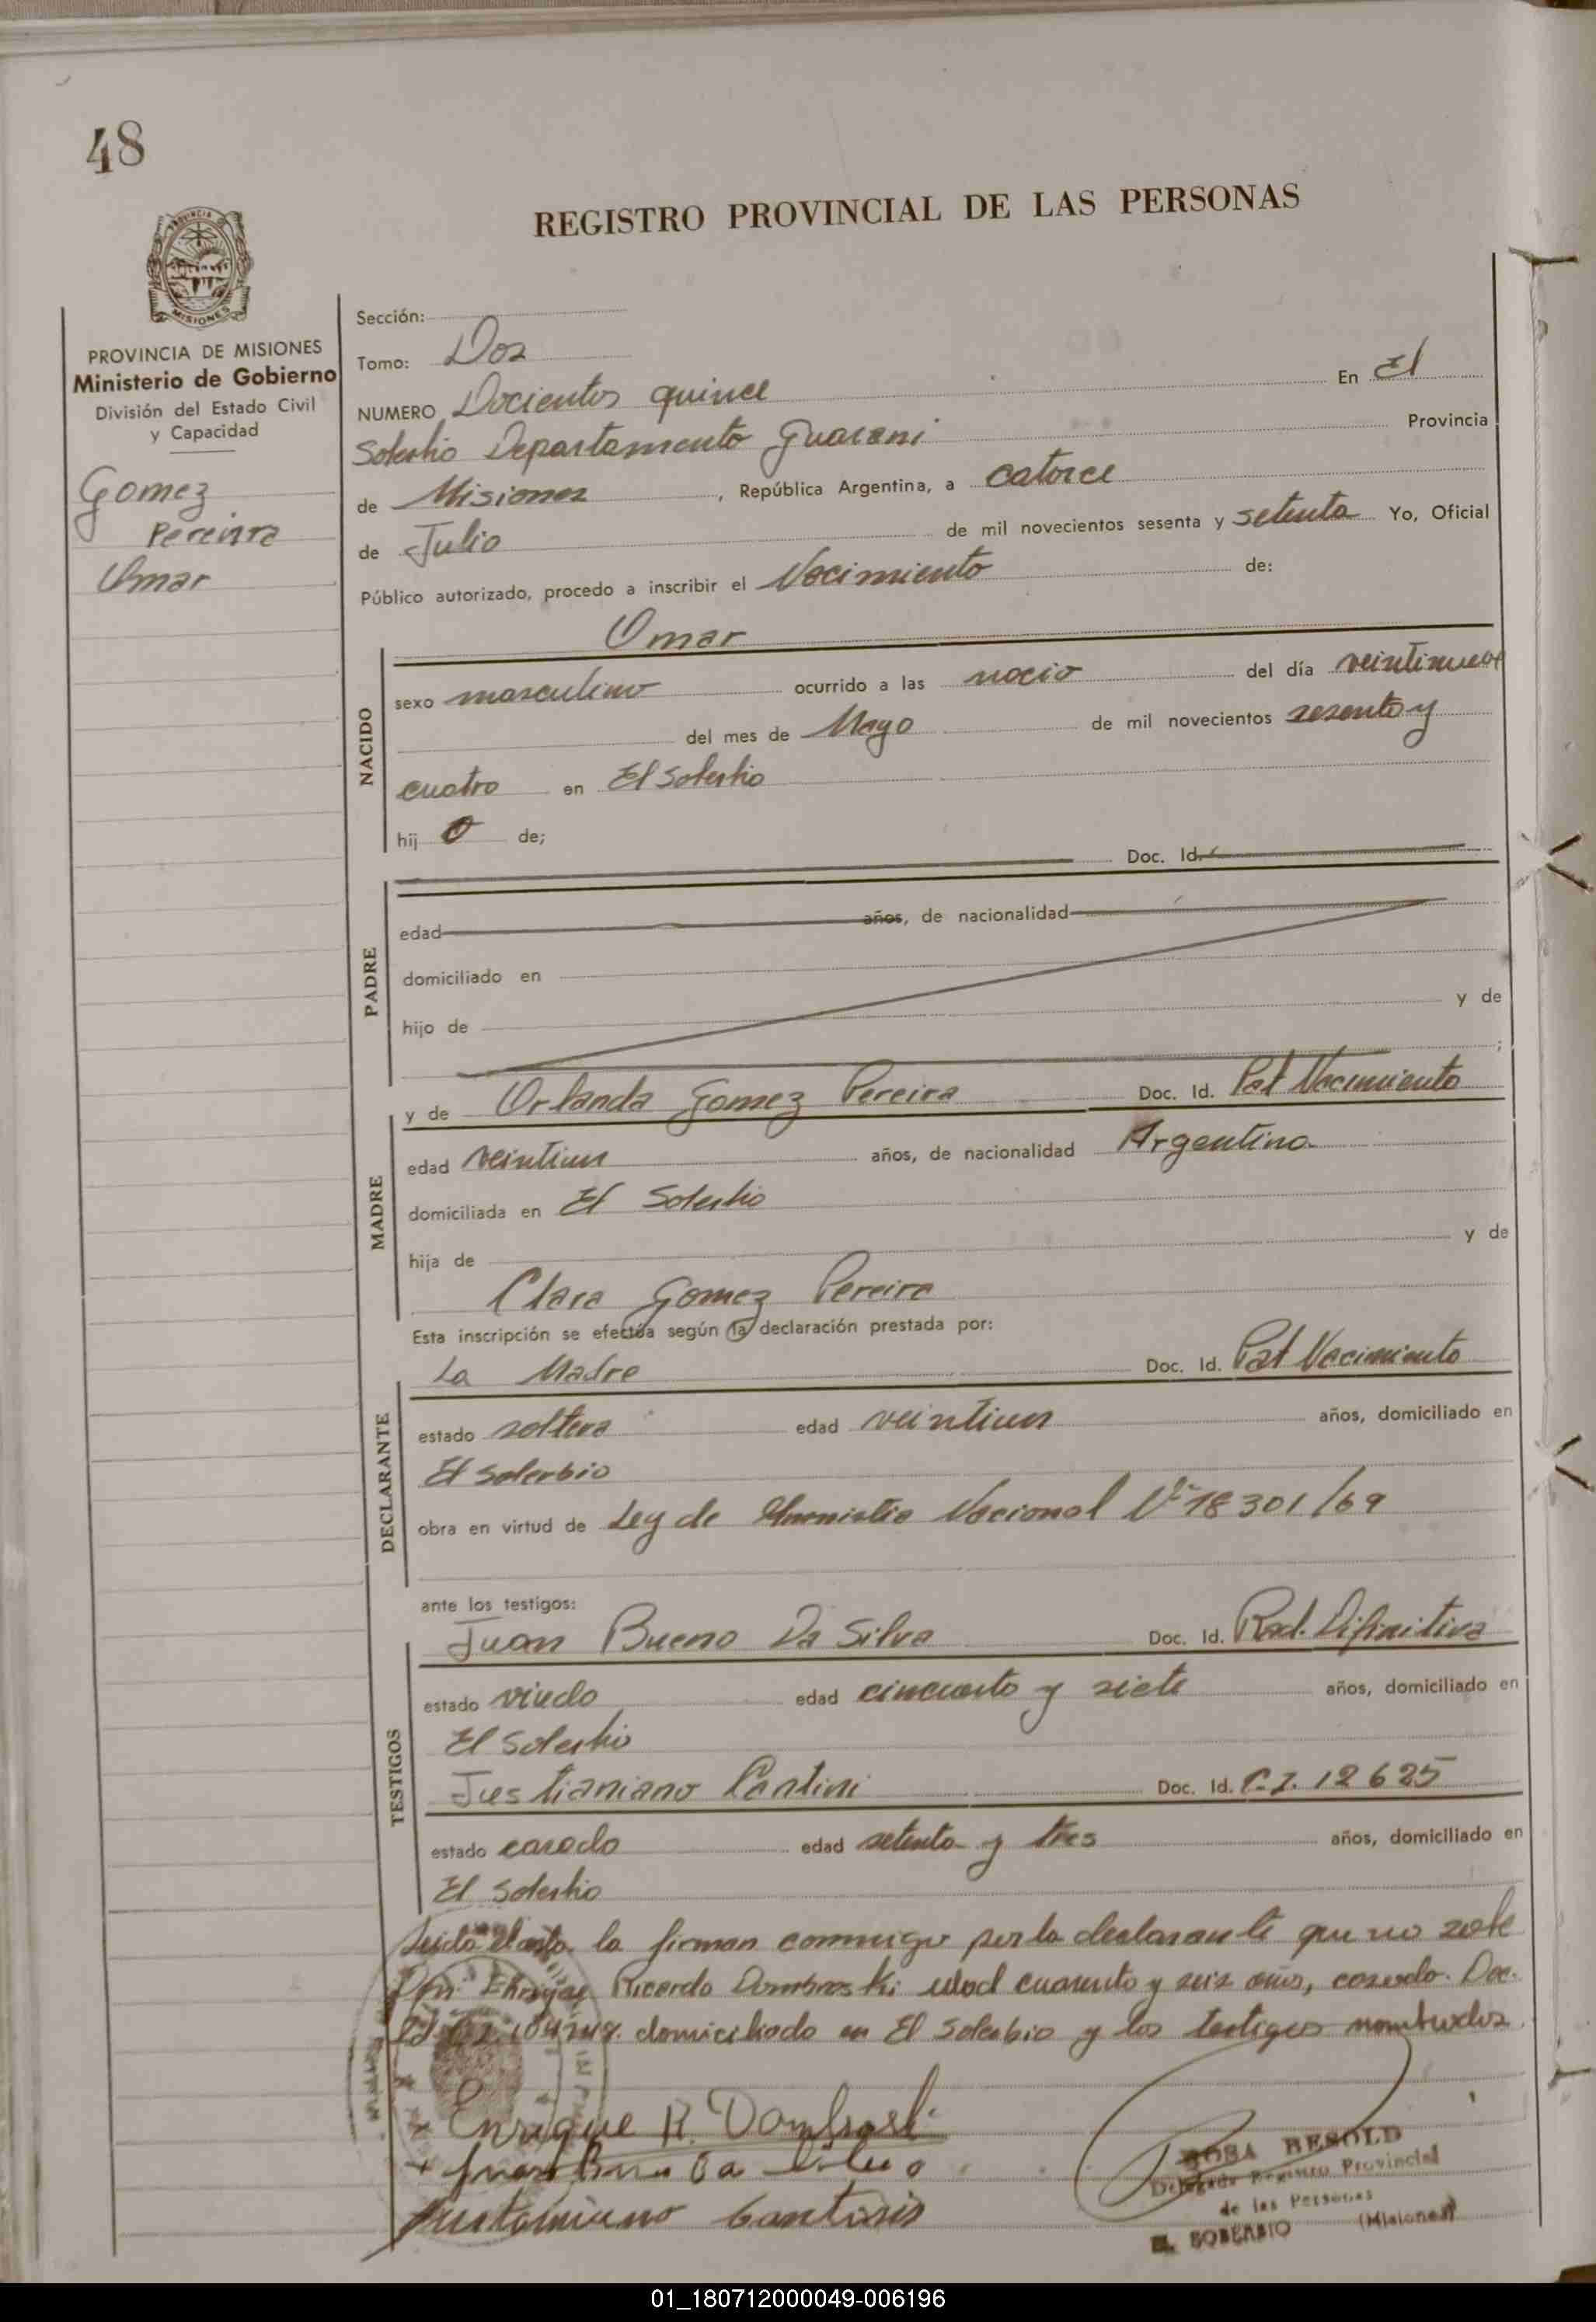 48
REGISTRO PROVINCIAL DE LAS PERSONAS
PROVINCIA
MISIONES
PROVINCIA DE MISIONES
Ministerio de Gobierno
División del Estado Civil
y Capacidad
Gomez
Pereira
Omar
Sección:
Tomo: Dos
NUMERO Docientos quince En El
Soberbio Departamento Guarani Provincia
de Misiones, República Argentina, a catorce
de Julio de mil novecientos sesenta y setenta Yo, Oficial
Público autorizado, procedo a inscribir el Nacimiento de:
Omar
NACIDO
sexo masculino ocurrido a las nocio del día veintinueve
del mes de Mayo de mil novecientos sesenta y
cuatro en El Soberbio
hij o de;
Doc. Id.
PADRE
edad años, de nacionalidad
domiciliado en
hijo de y de
;
y de Orlanda Gomez Pereira Doc. Id. Pat Nacimiento
MADRE
edad veintiun años, de nacionalidad Argentina
domiciliada en El Soberbio
hija de y de
Clara Gomez Pereira
Esta inscripción se efectúa según la declaración prestada por:
La Madre Doc. Id. Pat Nacimiento
DECLARANTE
estado soltera edad veintiun años, domiciliado en
El Soberbio
obra en virtud de Ley de Amnistia Nacional Nº 18301/69
ante los testigos:
Juan Bueno Da Silva Doc. Id. Rad. Difinitiva
TESTIGOS
estado viudo edad cincuenta y siete años, domiciliado en
El Soberbio
Justianiano Cantini Doc. Id. C.I. 12625
estado casado edad setenta y tres años, domiciliado en
El Soberbio
Leida el acta la firman conmigo por la declarante que no sabe
Don Ricardo Dombroski edad cuarenta y seis años, casado. Doc.
domiciliado en El Soberbio y los testigos nombrados
Enrique R. Dombroski
Juan Bueno Da Silva
ROSA BESOLD
Delegada Registro Provincial
de las Personas
EL SOBERBIO (Misiones)
01_180712000049-006196